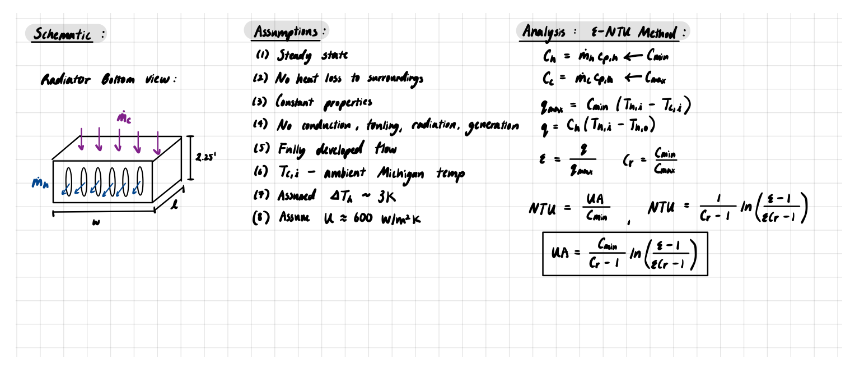 Schematic :
Radiator Bottom view :
ṁc
ṁh
2.25'
w
l
Assumptions :
(1) Steady state
(2) No heat loss to surroundings
(3) Constant properties
(4) No conduction, fouling, radiation, generation
(5) Fully developed flow
(6) Tc,i - ambient Michigan temp
(7) Assumed ΔTh ~ 3K
(8) Assume U ≈ 600 W/m²K
Analysis : ε-NTU Method :
Ch = ṁh cp,h ← Cmin
Cc = ṁc cp,h ← Cmax
qmax = Cmin (Th,i - Tc,i)
q = Ch (Th,i - Th,o)
ε = q / qmax   Cr = Cmin / Cmax
NTU = UA / Cmin , NTU = 1 / (Cr - 1) ln((ε - 1) / (εCr - 1))
UA = Cmin / (Cr - 1) ln((ε - 1) / (εCr - 1))